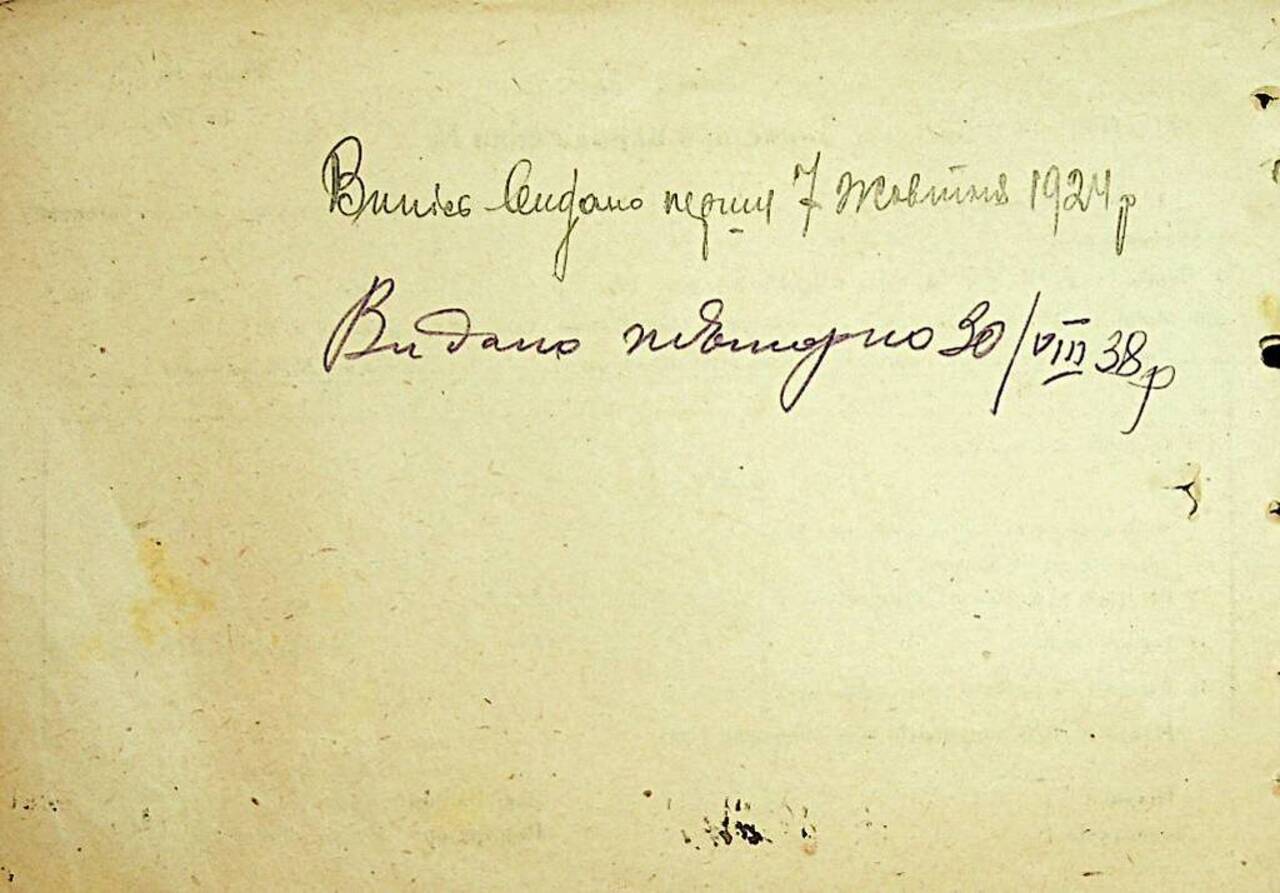 Випис видано перший 7 жовтня 1924 р
Видано повторно 30/VIII 38 р